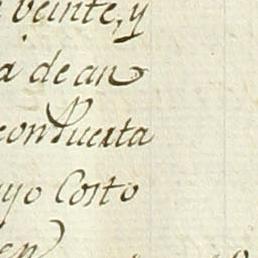 veinte, y
a de an
con Puerta
uyo Costo
en